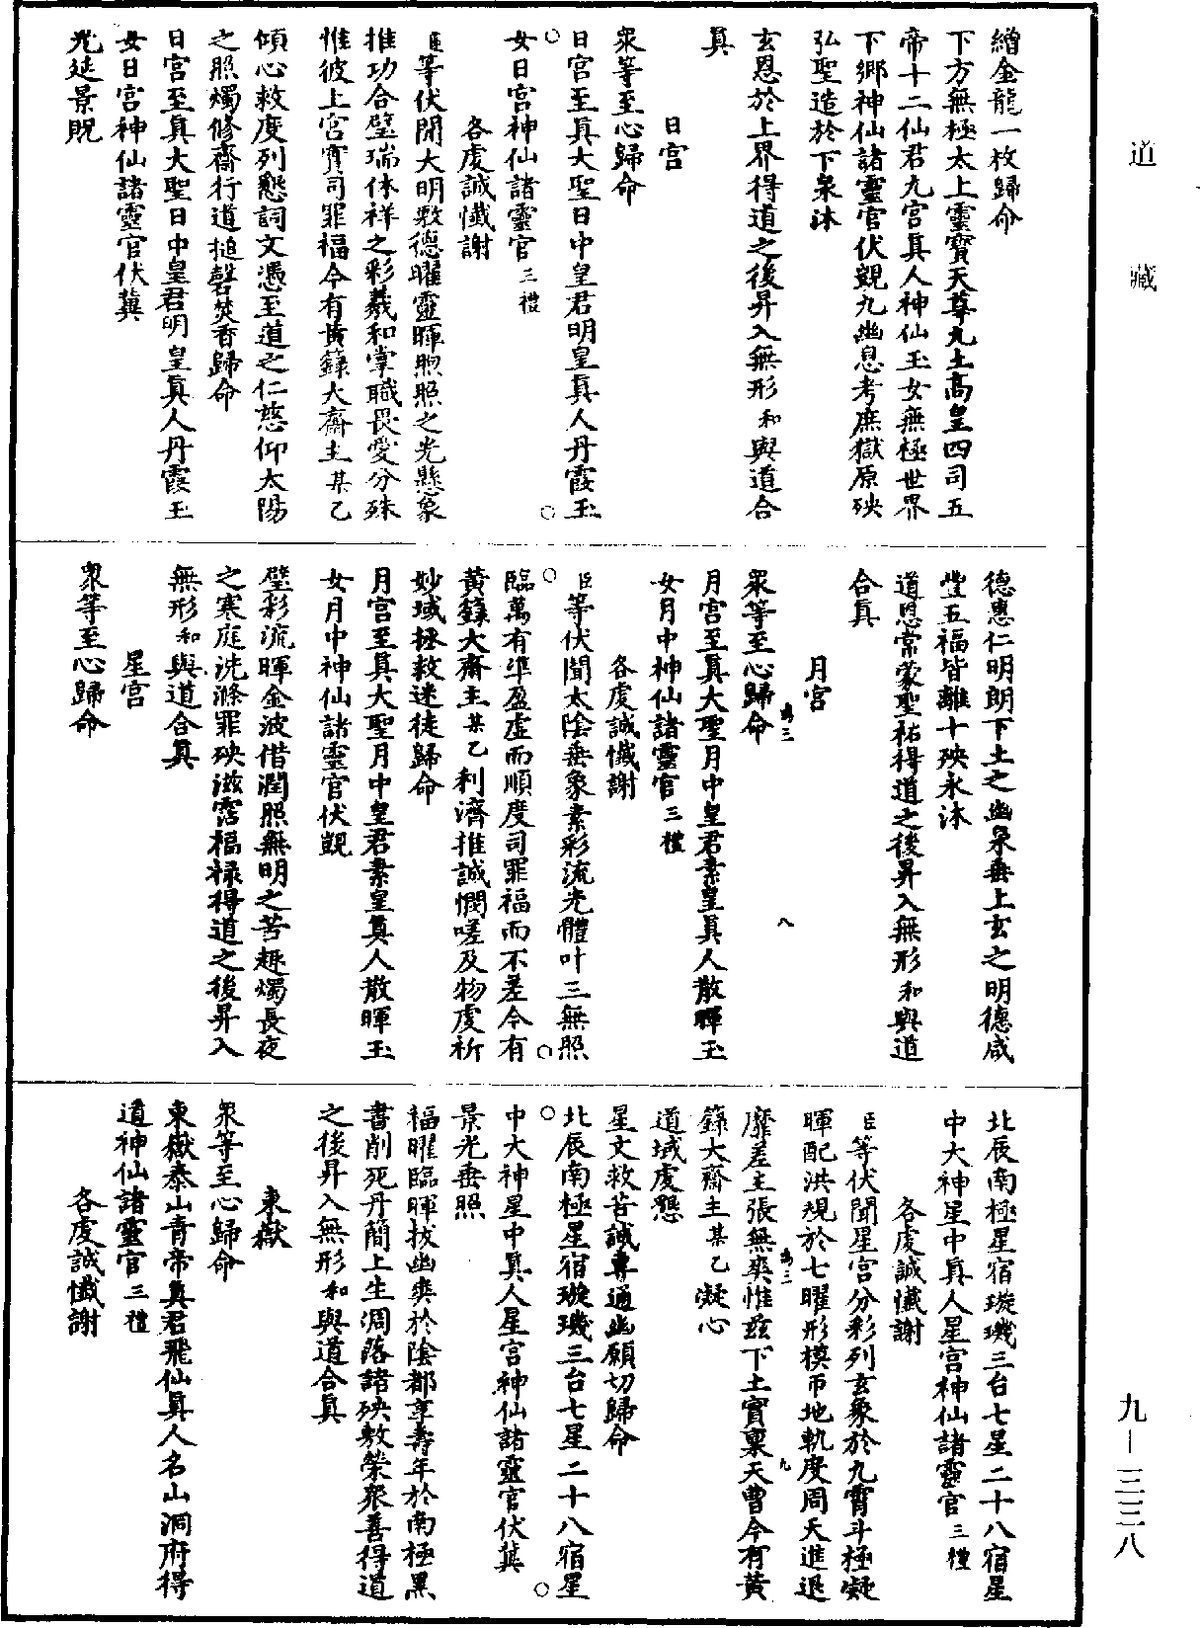 道藏
繒金龍一枚歸命
下方無極太上靈寶天尊九土高皇四司五
帝十二仙君九宮眞人神仙玉女無極世界
下鄉神仙諸靈官伏覬九幽息考庶獄原殃
弘聖造於下泉沐
玄恩於上界得道之後昇入無形和與道合
眞
日宮
衆等至心歸命
日宮至眞大聖日中皇君明皇眞人丹霞玉
女日宮神仙諸靈官三禮
各虔誠懺謝
臣等伏聞大明敷德曜靈暉煦照之光懸象
推功合璧瑞休祥之彩羲和掌職畏愛分殊
惟彼上宮實司罪福今有黃籙大齋主某乙
傾心救度列懇詞文憑至道之仁慈仰太陽
之照燭修齋行道搥磬焚香歸命
日宮至眞大聖日中皇君明皇眞人丹霞玉
女日宮神仙諸靈官伏冀
光延景貺
德惠仁明朗下土之幽泉垂上玄之明德咸
豐五福皆離十殃永沐
道恩常蒙聖祐得道之後昇入無形和與道
合眞
月宮
衆等至心歸命
月宮至眞大聖月中皇君素皇眞人散暉玉
女月中神仙諸靈官三禮
各虔誠懺謝
臣等伏聞太陰垂象素彩流光體叶三無照
臨萬有準盈虛而順度司罪福而不差今有
黃籙大齋主某乙利濟推誠憫嗟及物虔祈
妙域拯救迷徒歸命
月宮至眞大聖月中皇君素皇眞人散暉玉
女月中神仙諸靈官伏覬
璧彩流暉金波借潤照無明之苦趣燭長夜
之寒庭洗滌罪殃滋霑福祿得道之後昇入
無形和與道合眞
星宮
衆等至心歸命
北辰南極星宿璇璣三台七星二十八宿星
中大神星中眞人星宮神仙諸靈官三禮
各虔誠懺謝
臣等伏聞星宮分彩列玄象於九霄斗極凝
暉配洪規於七曜形模帀地軌度周天進退
靡差主張無爽惟茲下土實稟天曹今有黃
籙大齋主某乙凝心
道域虔懇
星文救苦誠專通幽願切歸命
北辰南極星宿璇璣三台七星二十八宿星
中大神星中眞人星宮神仙諸靈官伏冀
景光垂照
福曜臨暉拔幽爽於陰都享壽年於南極黑
書削死丹簡上生凋落諸殃敷榮衆善得道
之後昇入無形和與道合眞
東嶽
衆等至心歸命
東嶽泰山青帝眞君飛仙眞人名山洞府得
道神仙諸靈官三禮
各虔誠懺謝
九—三三八